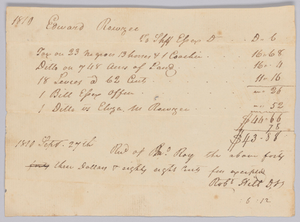 1810
Edward Rowzee
To Shff Essex Dr D - 6
Tax on 23 negroes 13 horses & 1 Coachee 16-68
Ditto on 748 Acres of Land 16-4
18 Levies @ 62 Cents 11-16
1 Bill Essex Office -26
1 Ditto vs Eliza. M Rowzee -52
$44-66
$43-88
1811 Feby. 27th Recd of Roy the above forty
three Dollars & eighty eight cents for
Robt. Hill D.S
5 12